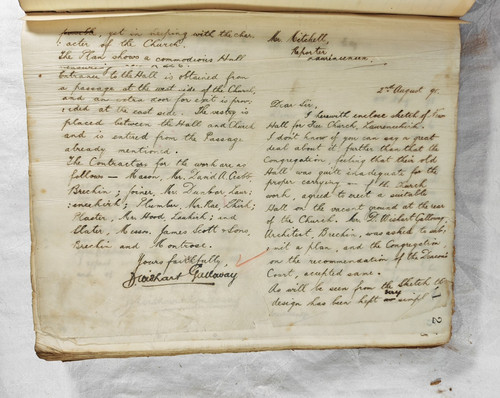 yet in keeping with the char
acter of the Church.
The Plan shows a commodious Hall
Entrance to the Hall is obtained from
a passage at the west side of the Church,
and an extra door for exit is prov
ided at the east side. The vestry is
placed between the Hall and Church
and is entered from the Passage
already mentioned.
The Contractors for the work are as
follows – Mason, Mr. David A. Crabb,
Brechin; joiner, Mr. Dunbar, Laur:
:encekirk; Plumber, Mr. Rae, Lkirk;
Plaster, Mr. Hood, Laukirk; and
Slater, Messrs. James Scott & Sons,
Brechin and Montrose.
Yours faithfully,
Wishart Galloway
Mr Mitchell,
Reporter,
Laurencekirk.
2nd August 9
Dear Sir,
I herewith enclose sketch of New
Hall for Free Church, Laurencekirk.
I don't know if you can say a great
deal about it, further than that the
Congregation, feeling that their old
Hall was quite inadequate for the
proper carrying on of the Church
work, agreed to erect a suitable
Hall on the vacant ground at the rear
of the Church. Mr. D. Wishart Galloway,
Architect, Brechin, was asked to sub,
:mit a plan, and the Congregation
on the recommendation of the Deacons
Court, accepted same.
As will be seen from the Sketch the
design has been kept very simple
2